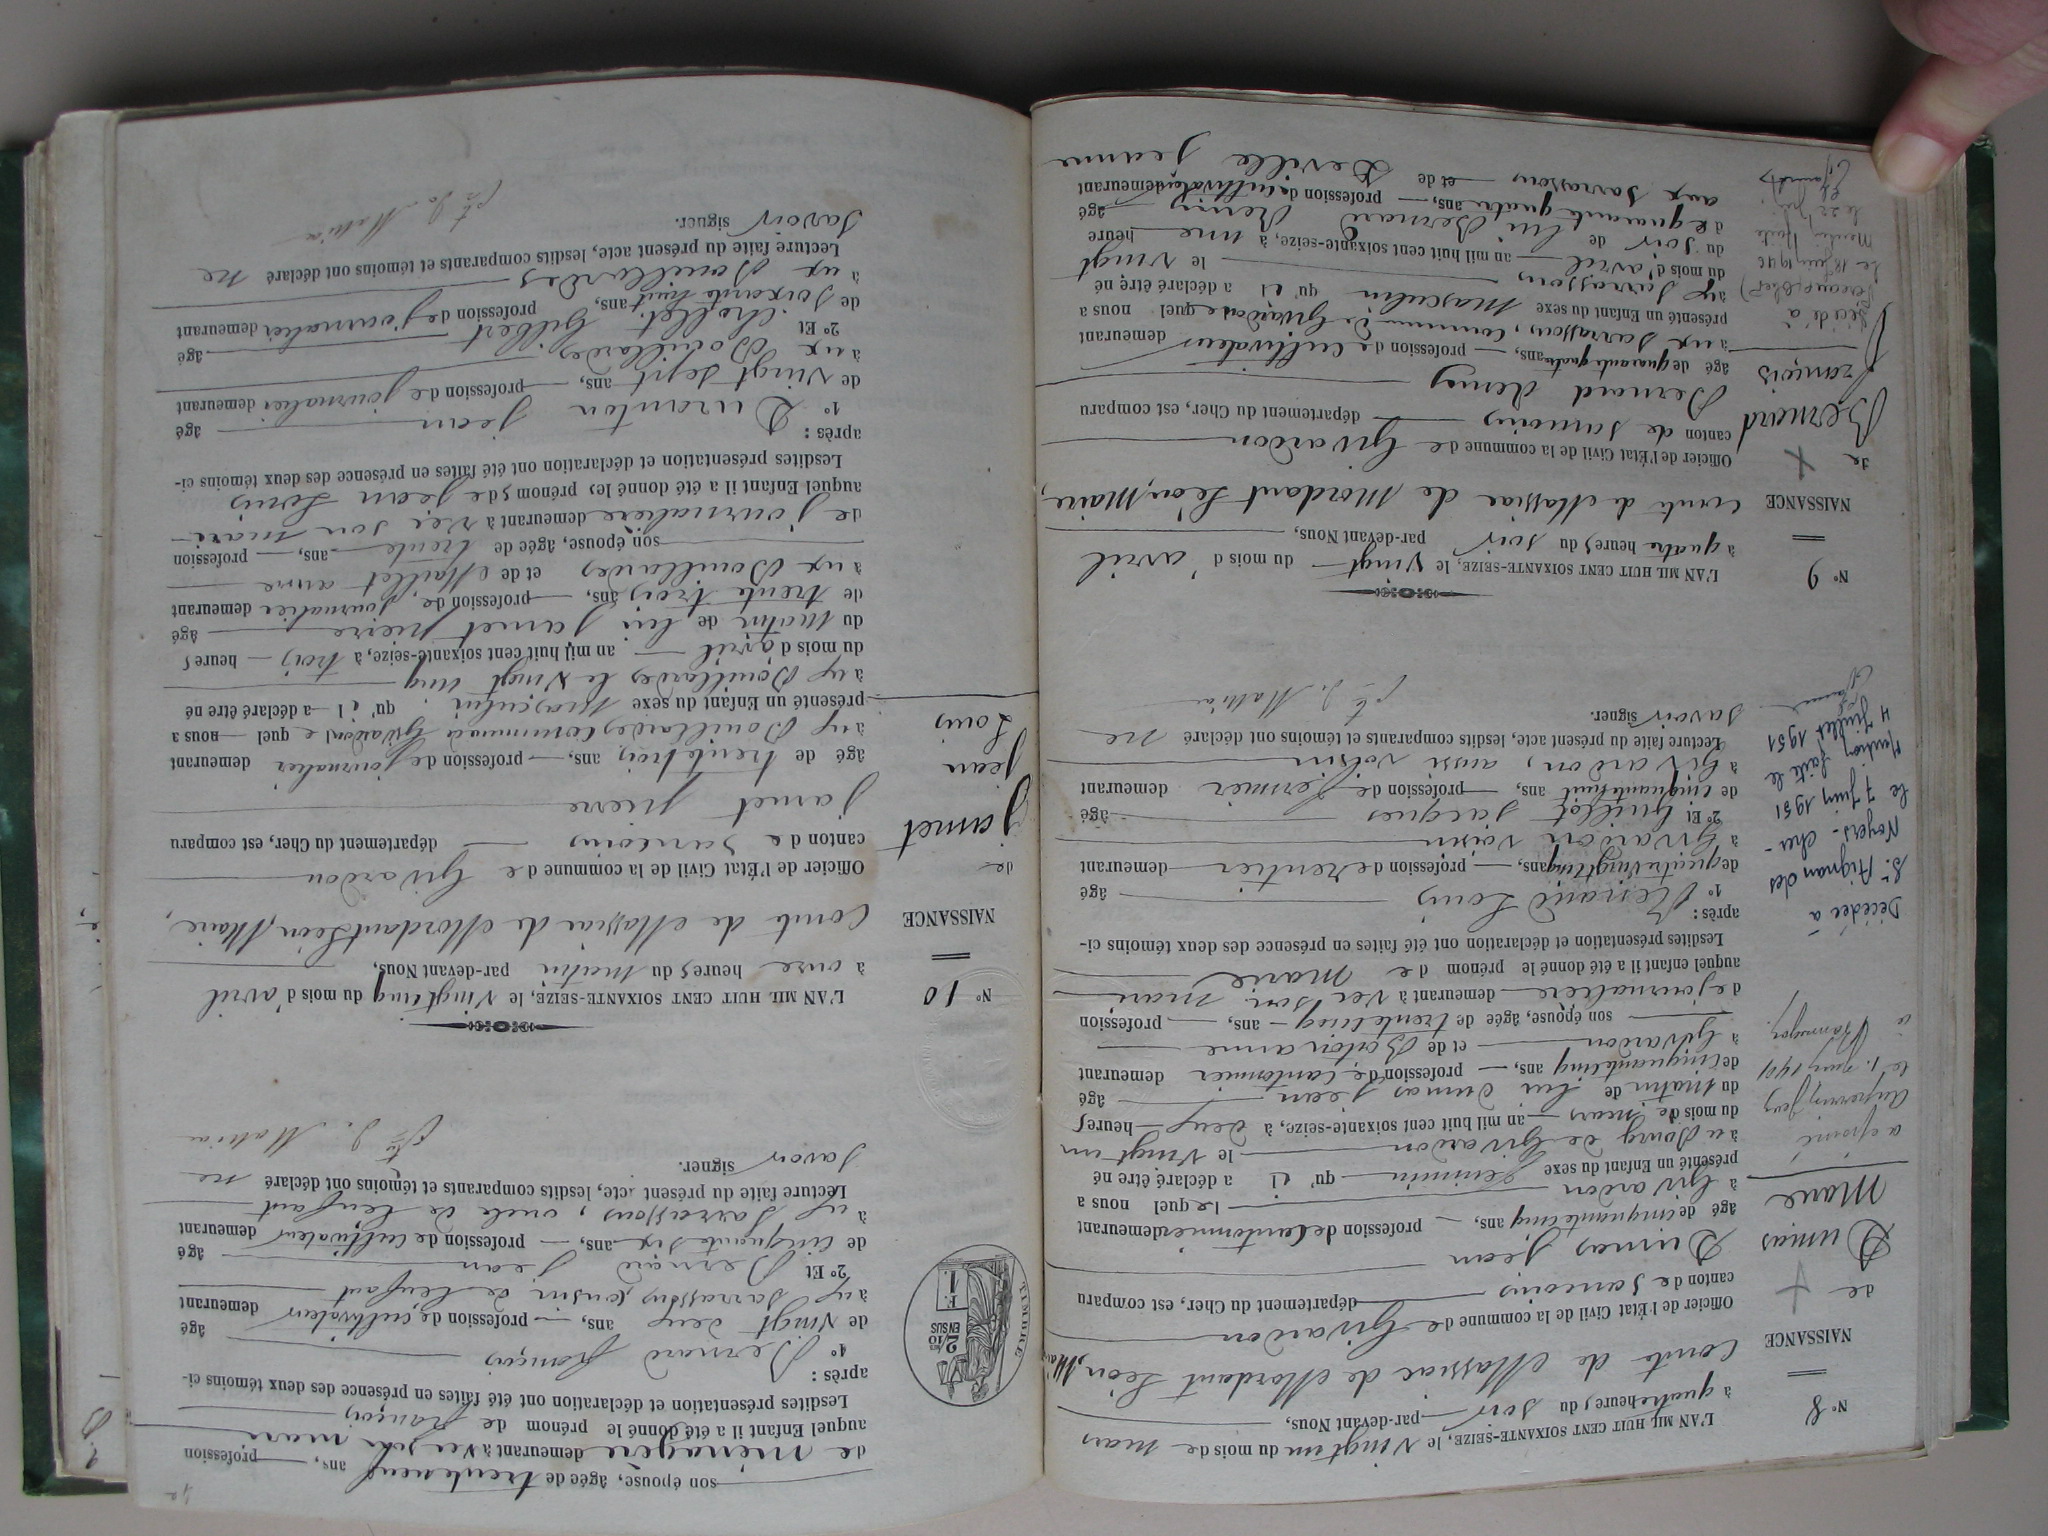 N° 8
NAISSANCE
de
Dumas
Marie
a épousé
le 1. juin 1901
à
Décédée à
St Aignan des
Noyers - Cher -
le 7 Juin 1951
Mention faite le
4 Juillet 1951
L'AN MIL HUIT CENT SOIXANTE-SEIZE, le vingt un du mois de mars
à quatre heures du soir par-devant Nous,
Comte de Massiac de Mordant Léon, Maire
Officier de l'État Civil de la commune de Givardon
canton de Sancoins département du Cher, est comparu
Dumas Jean
âgé de cinquante cinq ans, profession de cantonnier demeurant
à Givardon lequel nous a
présenté un Enfant du sexe féminin qu'il a déclaré être né
au Bourg de Givardon le vingt un
du mois de mars an mil huit cent soixante-seize, à deux heures
du matin de lui Dumas Jean âgé
de cinquante cinq ans, profession de cantonnier demeurant
à Givardon et de Boton anne
son épouse, âgée de trente cinq ans, profession
de journalière demeurant avec son mari
auquel enfant il a été donné le prénom de Marie
Lesdites présentation et déclaration ont été faites en présence des deux témoins ci-
après :
1° Renaud Louis âgé
de quatre vingt cinq ans, profession de rentier demeurant
à Givardon voisin
2° Et Guillot Jacques âgé
de cinquante huit ans, profession de fermier demeurant
à Givardon, aussi voisin
Lecture faite du présent acte, lesdits comparants et témoins ont déclaré ne
savoir signer.
N° 9
NAISSANCE
de
Bernard
François
Décédé à
le 18 Juin 1946
Mention faite
le 22
L'AN MIL HUIT CENT SOIXANTE-SEIZE, le vingt du mois d'avril
à quatre heures du soir par-devant Nous,
Comte de Massiac de Mordant Léon, Maire,
Officier de l'État Civil de la commune de Givardon
canton de Sancoins département du Cher, est comparu
Bernard Remy
âgé de quarante quatre ans, profession de cultivateur demeurant
aux Sarrassons, commune de Givardon lequel nous a
présenté un Enfant du sexe Masculin qu'il a déclaré être né
aux Sarrassons le vingt
du mois d'avril an mil huit cent soixante-seize, à une heure
du soir de lui Bernard Remy âgé
de quarante quatre ans, profession de cultivateur demeurant
aux Sarrassons et de Deville Jeanne
son épouse, âgée de trente neuf ans, profession
de ménagère demeurant avec son mari
auquel Enfant il a été donné le prénom de François
Lesdites présentation et déclaration ont été faites en présence des deux témoins ci-
après :
1° Bernard François âgé
de vingt deux ans, profession de cultivateur demeurant
aux Sarrassons, cousin de l'enfant
2° Et Bernard Jean âgé
de cinquante six ans, profession de cultivateur demeurant
aux Sarrassons, oncle de l'enfant
Lecture faite du présent acte, lesdits comparants et témoins ont déclaré ne
savoir signer.
TIMBRE
2/10
EN SUS
1 F.
N° 10
NAISSANCE
de
Jamet
Jean
Louis
L'AN MIL HUIT CENT SOIXANTE-SEIZE, le vingt cinq du mois d'avril
à onze heures du matin par-devant Nous,
Comte de Massiac de Mordant Léon, Maire,
Officier de l'État Civil de la commune de Givardon
canton de Sancoins département du Cher, est comparu
Jamet Pierre
âgé de trente trois ans, profession de journalier demeurant
aux Bouillardes commune de Givardon lequel nous a
présenté un Enfant du sexe Masculin qu'il a déclaré être né
aux Bouillardes le vingt cinq
du mois d'avril an mil huit cent soixante-seize, à trois heures
du matin de lui Jamet pierre âgé
de trente trois ans, profession de journalier demeurant
aux Bouillardes et de Maillet anne
son épouse, âgée de trente ans, profession
de journalière demeurant avec son mari
auquel Enfant il a été donné les prénoms de Jean Louis
Lesdites présentation et déclaration ont été faites en présence des deux témoins ci-
après :
1° Duranton Jean âgé
de vingt sept ans, profession de journalier demeurant
aux Bouillardes
2° Et Chollet Gilbert âgé
de soixante huit ans, profession de journalier demeurant
aux Bouillardes
Lecture faite du présent acte, lesdits comparants et témoins ont déclaré ne
savoir signer.